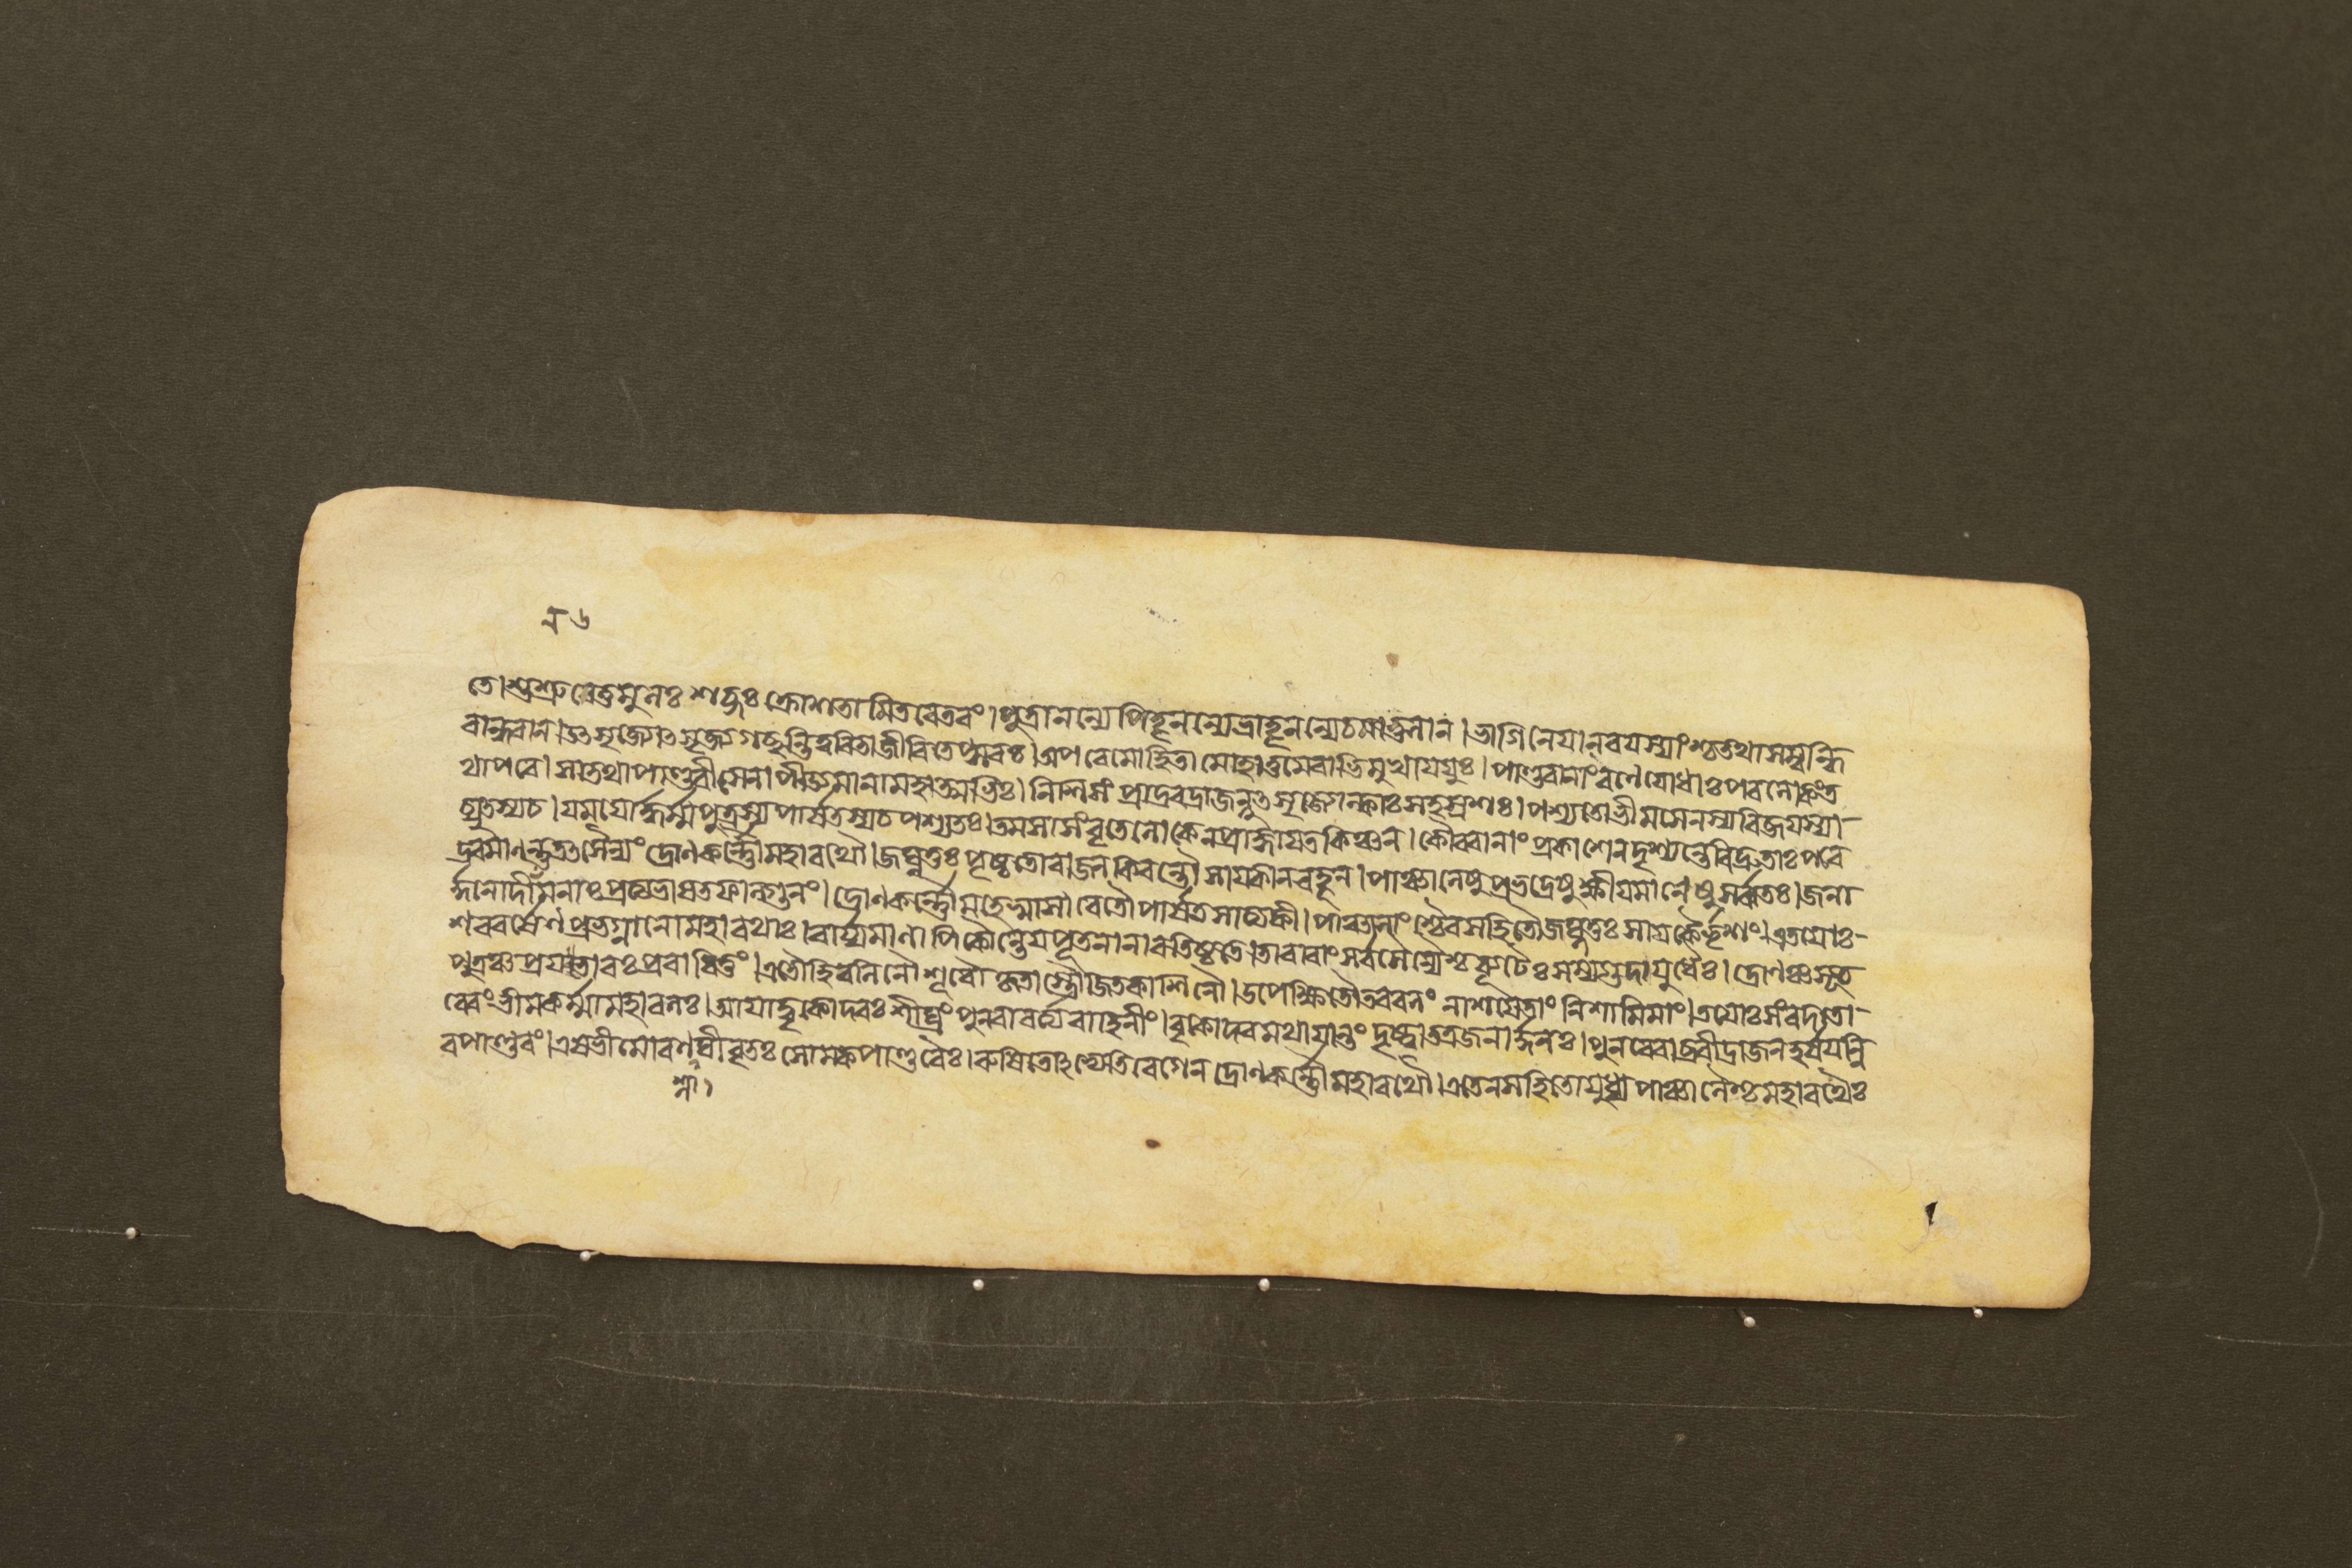 তে।শুশ্রুবেতুমুলঃ শব্দঃ ক্রোশতামিতরেতরং।পুত্রানন্যেপিতৄনন্যেভ্রাতৄনন্যেচমাতুলান।ভাগিনেয়ানবয়স্যাংশ্চতথাসম্বন্ধি
বান্ধবান।উত্সৃজ্যোত্সৃজ্যগচ্ছন্তিত্বরিতাজীবিতেপ্সবঃ।অপরেমোহিতামোহাত্তমেবাভিমুখাযযুঃ।পাণ্ডবানাংরণেযোধাঃপরলোকংত
থাপরে।সাতথাপাণ্ডবীসেনাপীড্যমানামহাত্মভিঃ।নিশিসংপ্রাদ্রবদ্রাজন্নুত্সৃজ্যোল্কাঃসহস্রশঃ।পশ্যতোভীমসেনস্যবিজয়স্যা-
চ্যুতস্যচ।যময়োর্দ্ধর্ম্মপুত্রস্যপার্ষতস্যচপশ্যতঃ।তমসাসংবৃতেলোকেনপ্রাজ্ঞায়তকিঞ্চন।কৌরবাণাংপ্রকাশেনদৃশ্যন্তেবিদ্রুতাঃপরে
দ্রবমাণন্তুতত্সৈন্যং দ্রোণকর্ণৌমহারথৌ।জঘ্নতুঃপৃষ্ঠতোরাজনকিরন্তৌসায়কানবহূন।পাঞ্চালেষুপ্রভগ্নেষুক্ষীয়মাণেষুসর্ব্বতঃ।জনা
র্দ্দনোদীনমনাঃপ্রত্যভাষতফাল্গুনং।দ্রোণকর্ণৌমহেষ্বাসাবেতৌপার্ষতসাত্যকী।পাঞ্চালাংশ্চৈবসহিতৌজঘ্নতুঃসায়কৈর্ভৃশং।এতয়োঃ-
শরবর্ষেণপ্রভগ্নানোমহারথাঃ।বার্য্যমাণাপিকৌন্তেয়পৃতনানাবতিষ্ঠতে।তাবাবাংসর্বসৈন্যৈশ্চব্যূঢৈঃসম্যগুদায়ুধৈঃ।দ্রোণঞ্চসূত
পুত্রঞ্চপ্রযতাবঃপ্রবাধিতুং।এতৌহিবলিনৌশূরৌকৃতাস্ত্রৌজিতকাশিনৌ।উপেক্ষিতৌতববলং নাশয়েতাং নিশামিমাং।তয়োঃসংবদতো-
রেবংভীমকর্ম্মামহাবলঃ।আয়াদ্বৃকোদরঃশীঘ্রংপুনরাবর্ত্যবাহিনীং।বৃকোদরমথায়ান্তং দৃষ্ট্বাতত্রজনার্দ্দনঃ।পুনরেবাব্রবীদ্রাজনহর্ষয়ন্নি
বপাণ্ডবং।এষভীমোরণশ্লাঘীবৃতঃসোমকপাণ্ডবৈঃ।রুষিতোঽভ্যেতিবেগেন দ্রোণকর্ণৌমহারথৌ।এতেনসহিতোযুধ্যপাঞ্চালৈশ্চমহারথৈঃ
শ্লা।